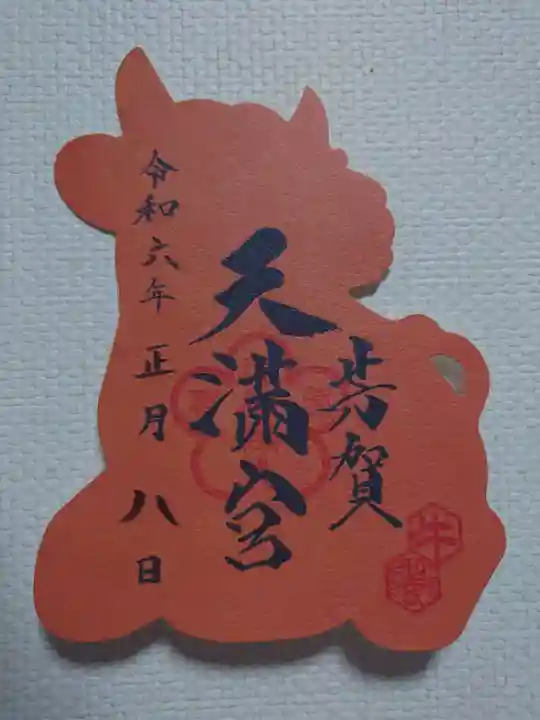 芳賀
天満宮
令和六年正月八日